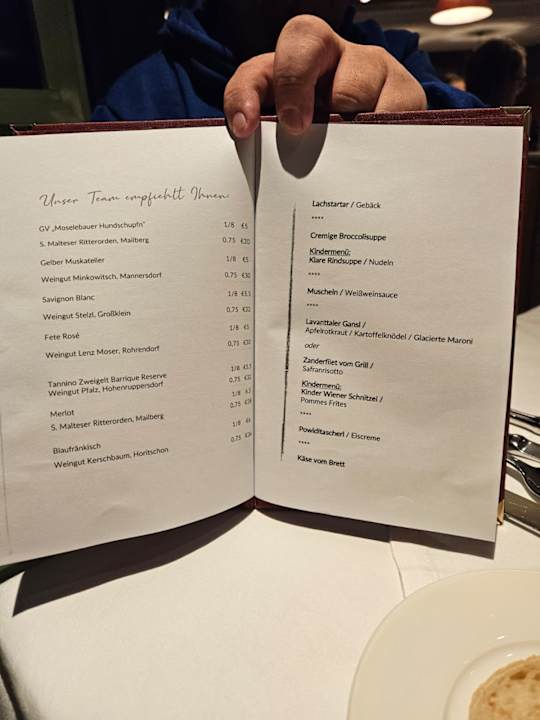 Unser Team empfiehlt Ihnen:
GV „Moselebauer Hundschupfn" 1/8 €5
S. Malteser Ritterorden, Mailberg 0,75 €30
Gelber Muskateller 1/8 €5
Weingut Minkowitsch, Mannersdorf 0,75 €30
Savignon Blanc 1/8
Weingut Stelzl, Großklein 0,75 €32
Fete Rosé 1/8 €5
Weingut Lenz Moser, Rohrendorf 0,75
Tannino Zweigelt Barrique Reserve 1/8
Weingut Pfalz, Hohenruppersdorf 0,75
Merlot 1/8
S. Malteser Ritterorden, Mailberg 0,75
Blaufränkisch 1/8
Weingut Kerschbaum, Horitschon 0,75
Lachstartar / Gebäck
****
Cremige Broccolisuppe
Kindermenü:
Klare Rindsuppe / Nudeln
****
Muscheln / Weißweinsauce
****
Lavanttaler Gansl /
Apfelrotkraut / Kartoffelknödel / Glacierte Maroni
oder
Zanderfilet vom Grill /
Safranrisotto
Kindermenü:
Kinder Wiener Schnitzel /
Pommes Frites
****
Powidltascherl / Eiscreme
****
Käse vom Brett